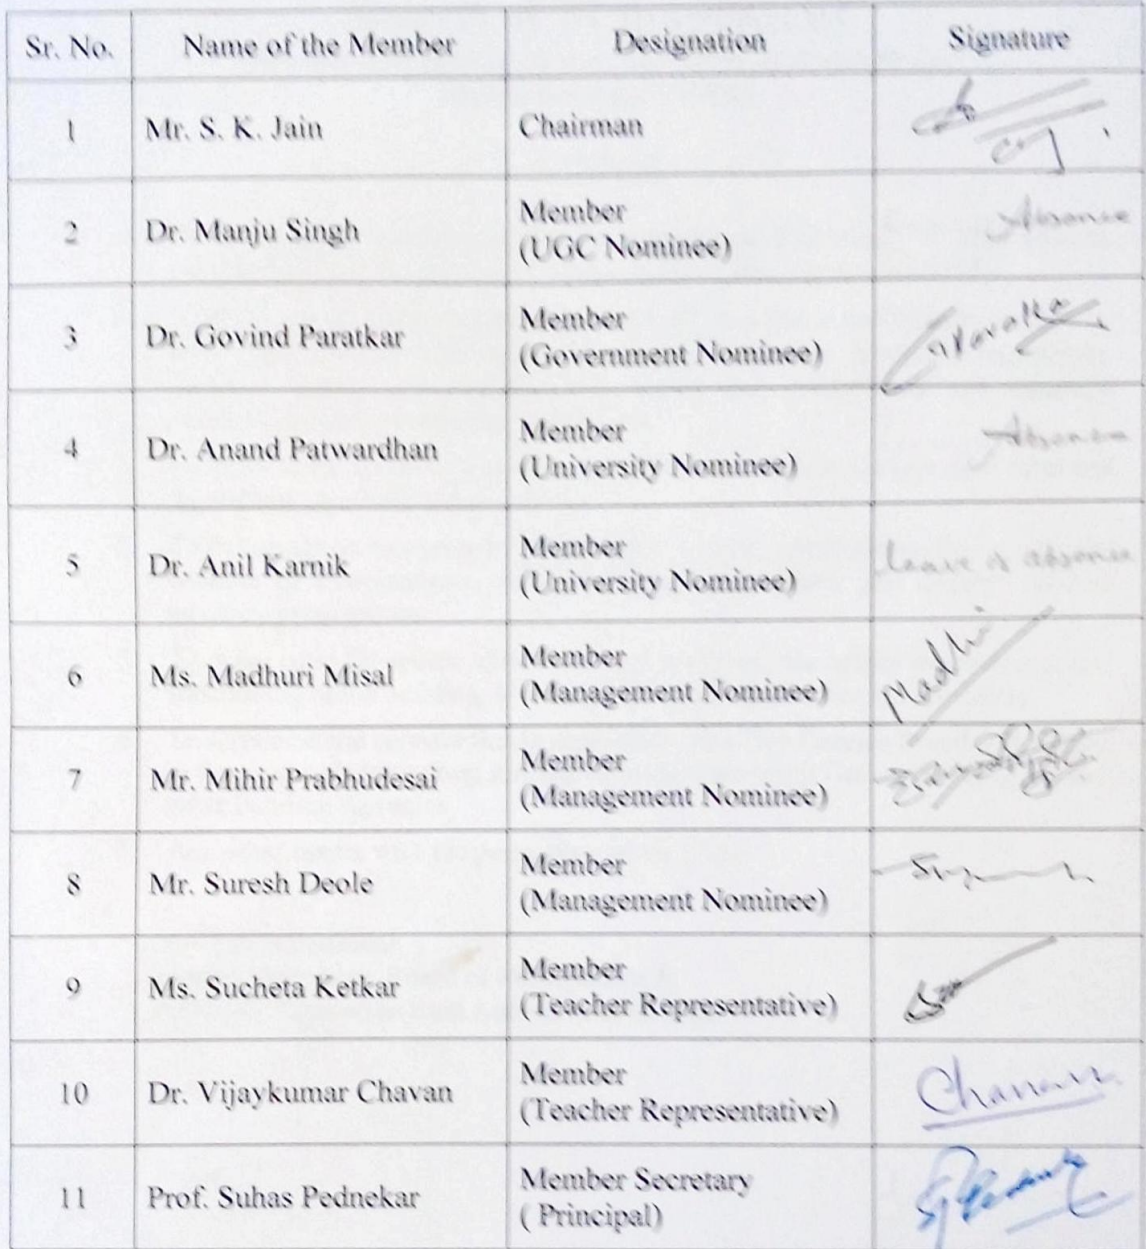 Sr. No. Name of the Member Designation Signature
1 Mr. S. K. Jain Chairman
2 Dr. Manju Singh Member
(UGC Nominee) Absence
3 Dr. Govind Paratkar Member
(Government Nominee)
4 Dr. Anand Patwardhan Member
(University Nominee) Absence
5 Dr. Anil Karnik Member
(University Nominee) leave of absence
6 Ms. Madhuri Misal Member
(Management Nominee)
7 Mr. Mihir Prabhudesai Member
(Management Nominee)
8 Mr. Suresh Deole Member
(Management Nominee)
9 Ms. Sucheta Ketkar Member
(Teacher Representative)
10 Dr. Vijaykumar Chavan Member
(Teacher Representative) Chavan
11 Prof. Suhas Pednekar Member Secretary
( Principal)